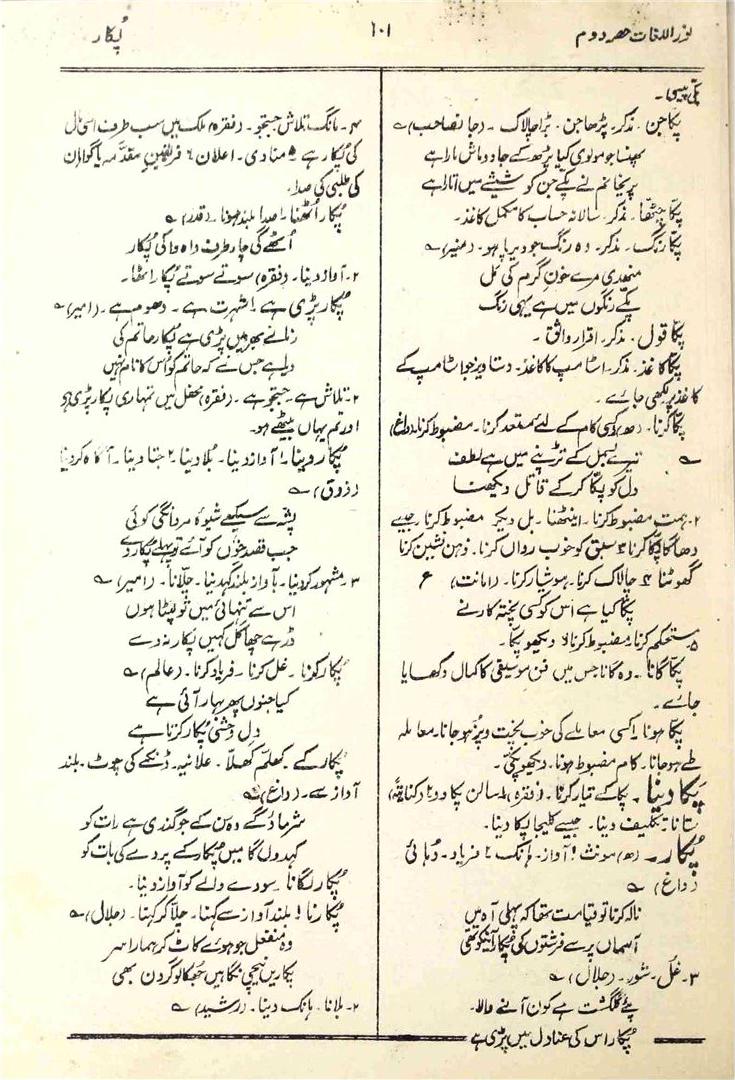 نور اللغات حصہ دوم
۶۰۱
پُکار
پکّی پیسی۔
پکّا جن۔ مذکر۔ پڑھا جن۔ بڑا چالاک۔ (جانصاحب) ؎
پھنسا جو مولوی کیا پڑھ کے جادو ماش مارا ہے
پریخانم نے پکّے جن کو شیشے میں اتارا ہے
پکّا چٹھا۔ مذکر۔ سالانہ حساب کا مکمل کاغذ۔
پکّا رنگ۔ مذکر۔ وہ رنگ جو دیرپا ہو۔ (منیر) ؎
منہدی مرے خونِ گرم کی مَل
پکّے رنگوں میں ہے یہی رنگ
پکّا قول۔ مذکر۔ اقرار واثق۔
پکّا کاغذ۔ مذکر۔ اسٹامپ کا کاغذ۔ دستاویز جو اسٹامپ کے
کاغذ پر لکھی جائے۔
پکّا کرنا۔ (ھ) کسی کام کے لئے مستعد کرنا۔ مضبوط کرنا۔ (داغ)
؎ تیرے بسمل کے تڑپنے میں ہے لطف
دل کو پکّا کر کے قاتل دیکھنا
۲۔ بہت مضبوط کرنا۔ اینٹھنا۔ بل دیکر مضبوط کرنا۔ جیسے
دھاگا پکّا کرنا ۳ سبق کو خوب رواں کرنا۔ ذہن نشین کرنا
گھوٹنا ۴ چالاک کرنا۔ ہوشیار کرنا۔ (امانت) ع
پکّا کیا ہے اس کو کسی پختہ کار نے
۵ مستحکم کرنا۔ مضبوط کرنا ۶ دیکھو پکّا۔
پکّا گانا۔ وہ گانا جس میں فن موسیقی کا کمال دکھایا
جائے۔
پکّا ہونا ۱ کسی معاملے کی خوب پخت و پز ہو جانا۔ معاملہ
طے ہو جانا۔ کام مضبوط ہونا۔ دیکھو پکّی۔
پکا دینا۔ پکا کے تیار کرنا۔ (فقرہ) سالن پکا دو ۲ (کنایۃً)
ستانا۔ تکلیف دینا۔ جیسے کلیجا پکا دینا۔
پُکار۔ (ھ) مونث ۱ آواز۔ ہانک ۲ فریاد۔ دہائی
(داغ) ؎
نالہ کرنا تو قیامت تھا کہ پہلی آہ میں
آسماں پر سے فرشتوں کی پُکار آنیکو تھی
۳۔ غُل۔ شور۔ (جلال) ؎
پئے گلگشت ہے کون آنے والا۔
پُکار اس کی عنادل میں پڑی ہے
۴۔ مانگ۔ تلاش۔ جستجو۔ (فقرہ) ملک میں سب طرف اسی مال
کی پُکار ہے ۵ منادی۔ اعلان ۶ فریقین مقدّمہ یا گواہان
کی طلبی کی صدا۔
پُکار اُٹھنا ۱ صدا بلند ہونا۔ (قدر) ؎
اُٹھے گی چار طرف داہ دا کی پُکار
۲۔ آواز دینا۔ (فقرہ) سوتے سوتے پُکار اٹھا۔
پُکار پڑی ہے ۱ شہرت ہے۔ دھوم ہے۔ (امیر) ؎
زمانے بھر میں پڑی ہے پُکار حاتم کی
دیا ہے جس نے کہ حاتم کو اُس کا نام نہیں
۲۔ تلاش ہے۔ جستجو ہے۔ (فقرہ) محفل میں تمہاری پکار پڑی ہے
اور تم یہاں بیٹھے ہو۔
پُکار دینا ۱ آواز دینا۔ بُلا دینا ۲ جتا دینا۔ آگاہ کر دینا
(ذوق) ؎
پشّہ سے سیکھے شیوۂ مردانگی کوئی
جب قصدِ خوں کو آئے تو پہلے پُکار دے
۳۔ مشہور کر دینا۔ بآواز بلند کہہ دینا۔ چلّانا۔ (امیر) ؎
اس سے تنہائی میں تو لپٹا ہوں
ڈر ہے چھاگل کہیں پکار نہ دے
پُکار کرنا۔ غُل کرنا۔ فریاد کرنا۔ (عالم) ؎
کیا جنوں پھر بہار آئی ہے
دِل وحشی پُکار کرتا ہے
پُکار کے۔ کھلم کھلّا۔ علانیہ۔ ڈنکے کی چوٹ۔ بلند
آواز سے۔ (داغ) ؎
شرماؤ گے وہ دن کے جو گندی ہے رات کو
کہدوں گا میں پُکار کے پردے کی بات کو
پُکار لگانا۔ سودے والے کو آواز دینا۔
پُکارنا ۱ بلند آواز سے کہنا۔ چلّا کر کہنا۔ (جلال) ؎
وہ منفعل جو ہوئے کاٹ کر ہمارا سر
پکاریں نیچی نگاہیں جُھکا لو گردن بھی
۲۔ بلانا۔ ہانک دینا۔ (رشید) ؎